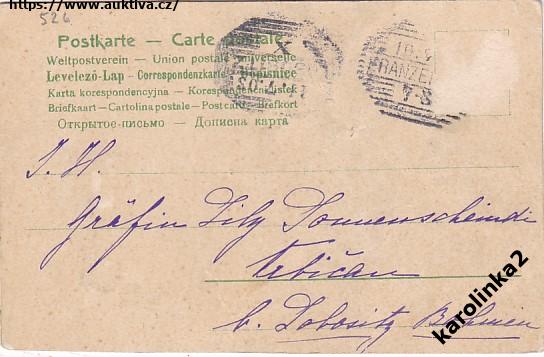 https://www.auktiva.cz/
526
Postkarte — Carte postale
Weltpostverein — Union postale universelle
Levelező-Lap — Correspondenzkarte — Dopisnice
Karta korespondencyjna — Korespondenční lístek
Briefkaart — Cartolina postale — Postcard — Brefkort
Открытое-письмо — Дописна карта
FRANZEN
7-8
I. H.
Gräfin Lily
Trbičan
b. Lobositz Böhmen
karolinka2